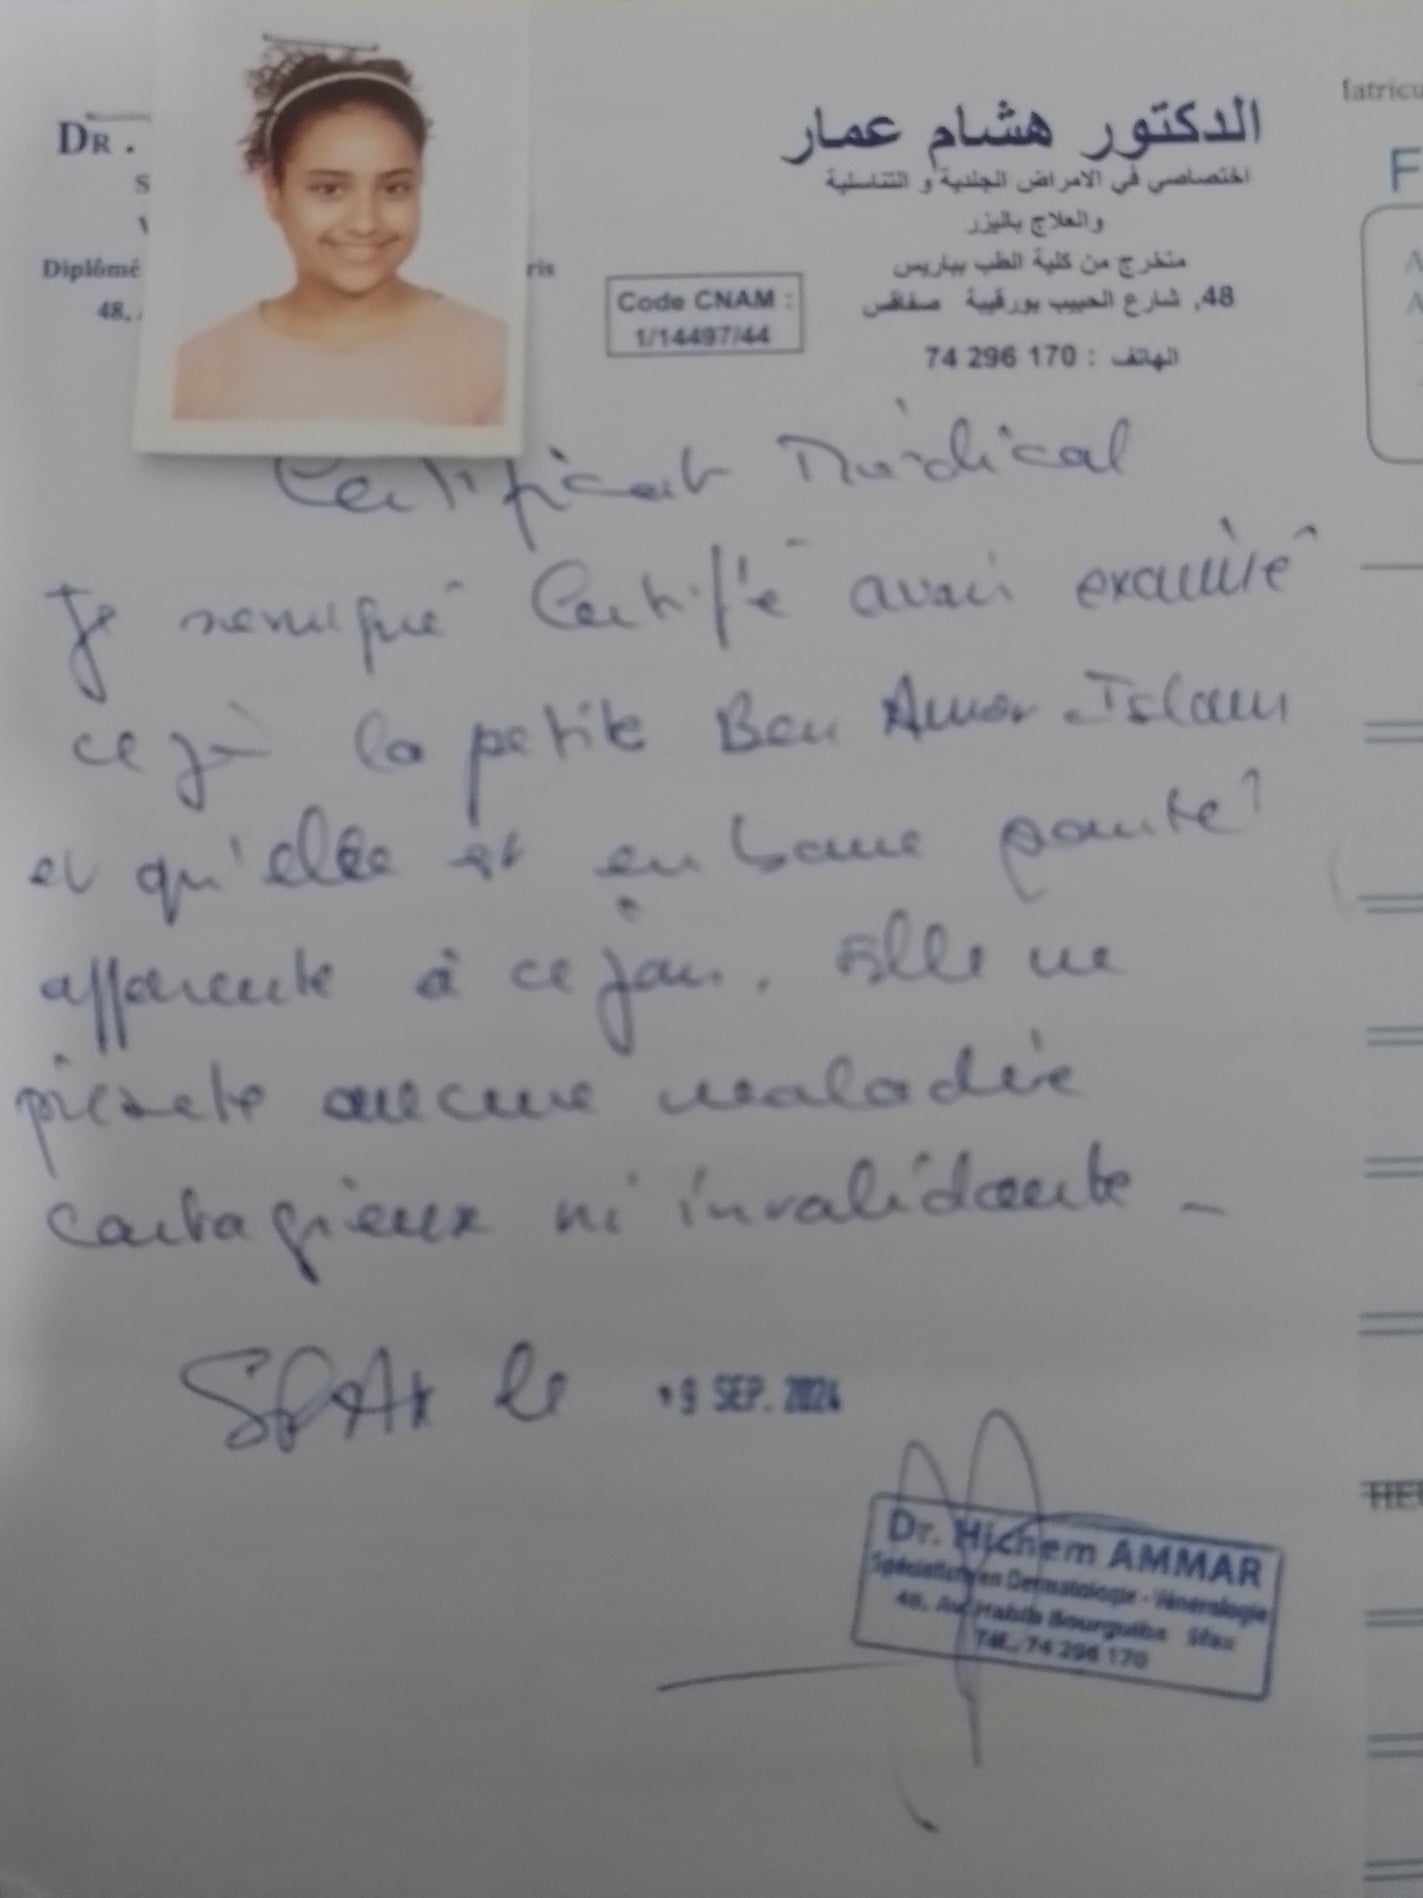 DR.
Diplômé
ris
48,
Code CNAM :
1/14497/44
الدكتور هشام عمار
اختصاصي في الامراض الجلدية و التناسلية
والعلاج باليزر
متخرج من كلية الطب بباريس
48, شارع الحبيب بورقيبة صفاقس
الهاتف : 170 296 74
Certificat Médical
Je certifie avoir examiné
ce jr la petite Ben Amor Islam
et qu'elle est en bonne santé
apparente à ce jour. Elle ne
présente aucune maladie
contagieux ni invalidante -
Sfax le 9 SEP. 2024
Dr. Hichem AMMAR
Spécialiste en Dermatologie - Vénérologie
48, Av. Habib Bourguiba Sfax
Tél.: 74 296 170